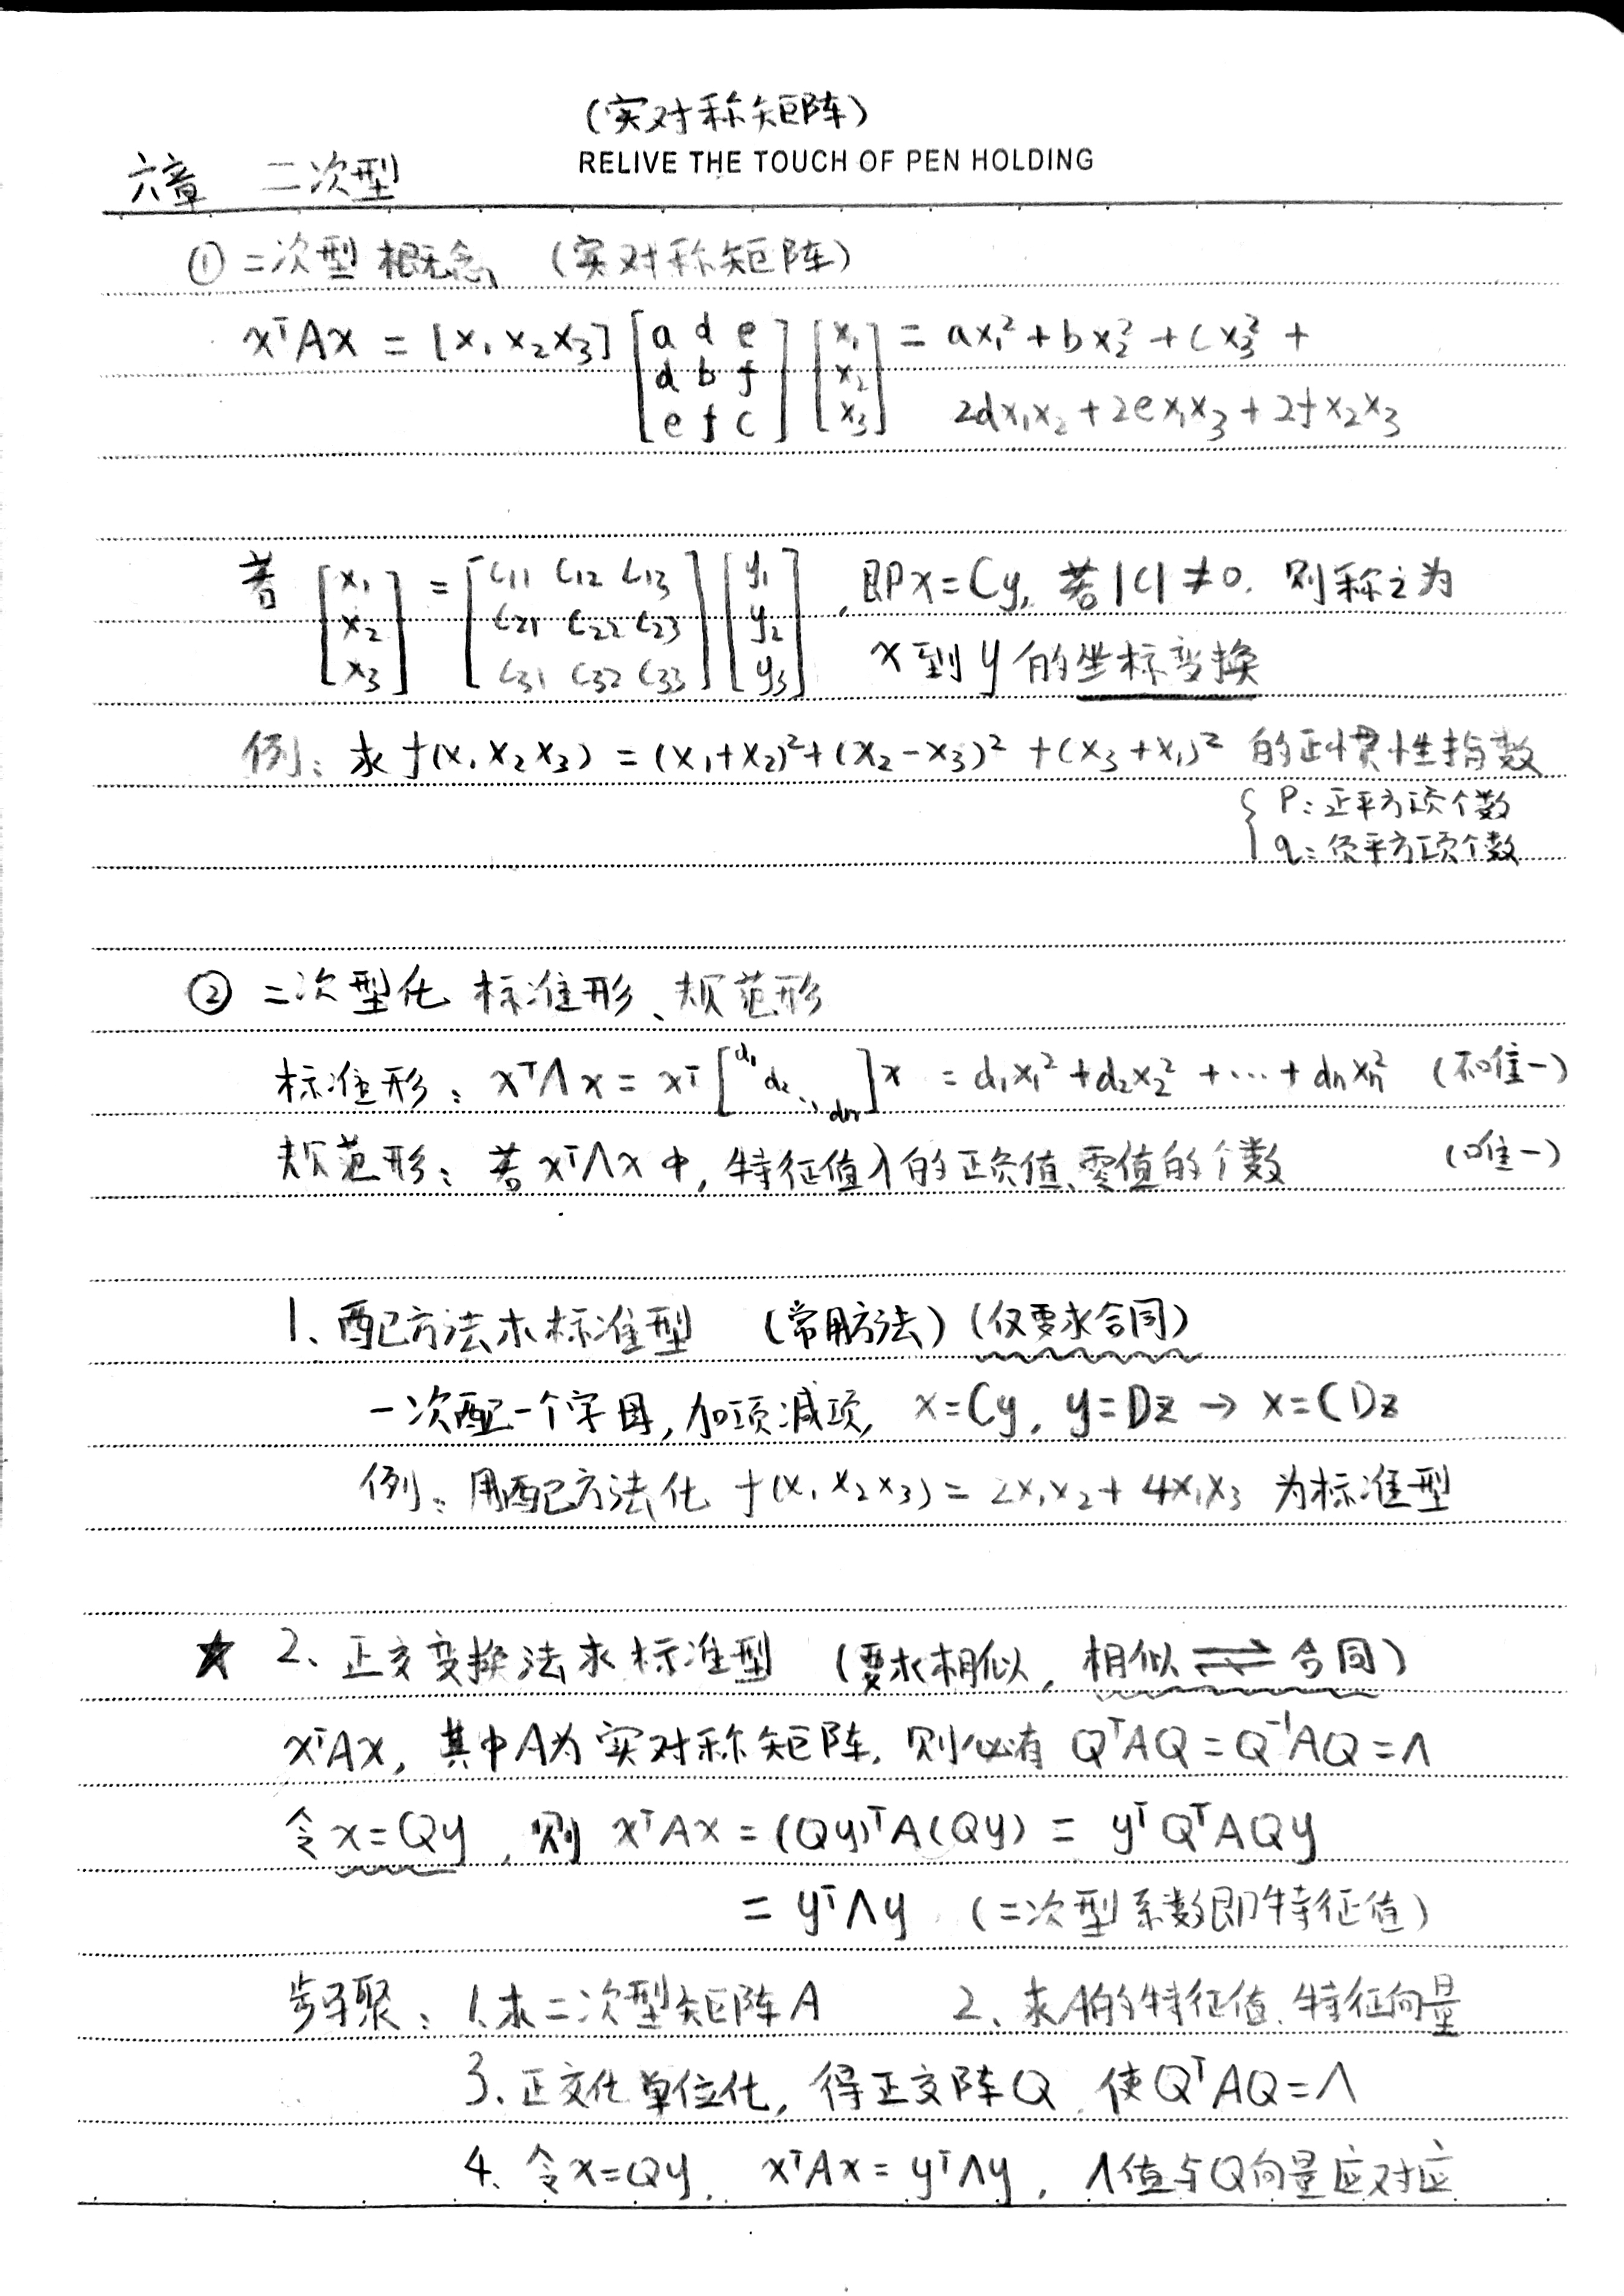 (实对称矩阵)
RELIVE THE TOUCH OF PEN HOLDING
六章 二次型
① 二次型概念 (实对称矩阵)
xᵀAx = [x₁ x₂ x₃] [a d e; d b f; e f c] [x₁; x₂; x₃] = ax₁² + bx₂² + cx₃² +
2dx₁x₂ + 2ex₁x₃ + 2fx₂x₃
若 [x₁; x₂; x₃] = [c₁₁ c₁₂ c₁₃; c₂₁ c₂₂ c₂₃; c₃₁ c₃₂ c₃₃] [y₁; y₂; y₃], 即x=Cy, 若|C|≠0. 则称之为
x到y的坐标变换
例: 求 f(x₁ x₂ x₃) = (x₁+x₂)²+(x₂-x₃)²+(x₃+x₁)² 的正惯性指数
{ p: 正平方项个数
q: 负平方项个数
② 二次型化 标准形、规范形
标准形: xᵀΛx = xᵀ [d₁ d₂ ⋱ dₙ] x = d₁x₁² + d₂x₂² + ⋯ + dₙxₙ² (不唯一)
规范形: 若xᵀΛx中, 特征值λ的正负值、零值的个数 (唯一)
1、配方法求标准型 (常用方法) (仅要求合同)
一次配一个字母, 加项减项, x=Cy, y=Dz → x=CDz
例: 用配方法化 f(x₁ x₂ x₃) = 2x₁x₂ + 4x₁x₃ 为标准型
★ 2、正交变换法求标准型 (要求相似, 相似 ⇌ 合同)
xᵀAx, 其中A为实对称矩阵, 则必有 QᵀAQ = Q⁻¹AQ = Λ
令x=Qy, 则 xᵀAx = (Qy)ᵀA(Qy) = yᵀQᵀAQy
= yᵀΛy (二次型系数即特征值)
步骤: 1.求二次型矩阵A 2、求A的特征值、特征向量
3、正交化单位化, 得正交阵Q, 使QᵀAQ=Λ
4、令x=Qy, xᵀAx = yᵀΛy, Λ值与Q向量应对应